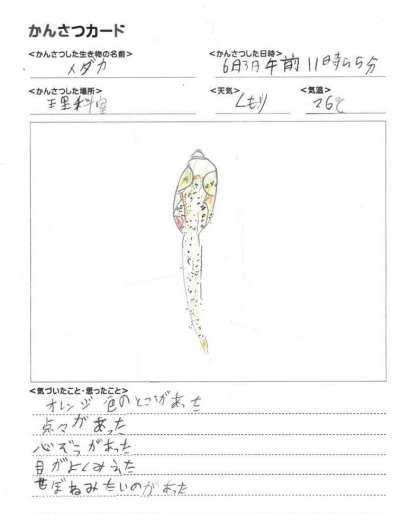 かんさつカード
<かんさつした生き物の名前> <かんさつした日時>
メダカ 6月3日午前11時55分
<かんさつした場所> <天気> <気温>
理科室 くもり 26℃
<気づいたこと・思ったこと>
オレンジ色のところがあった
点々があった
心ぞうがあった
目がよくみえた
せぼねみたいのがあった